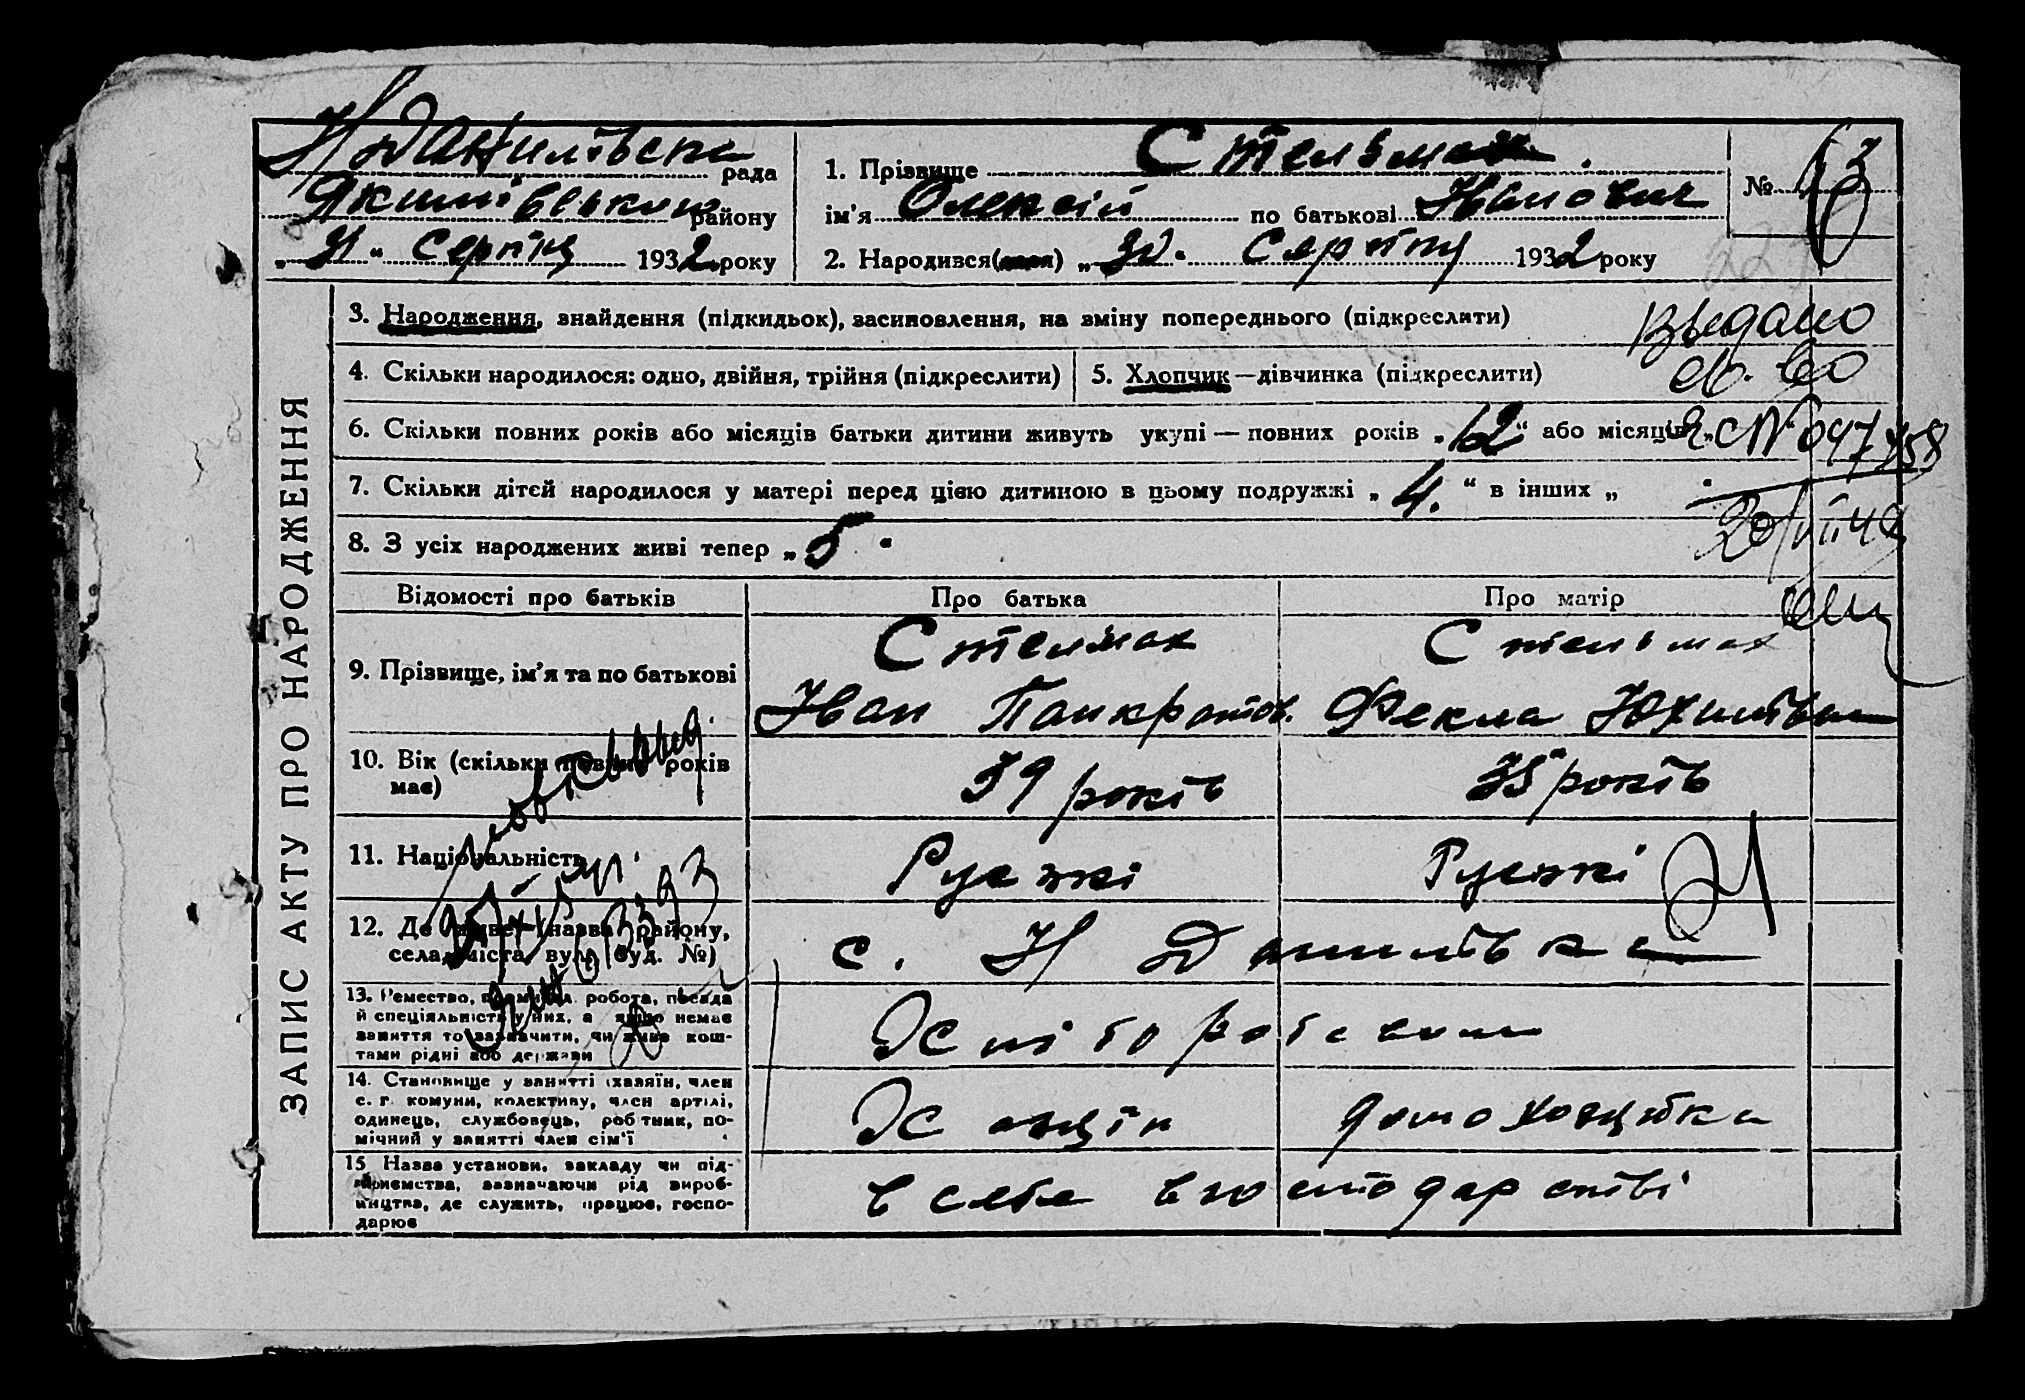 Н Данилівська рада
Якимівського району
„31“ Серпня 1932 року
1. Прізвище Стельмах
ім'я Олексій по батькові Іванович
№ 13
2. Народився( ) „30“ Серпня 1932 року
ЗАПИС АКТУ ПРО НАРОДЖЕННЯ
3. Народження, знайдення (підкидьок), засиновлення, на зміну попереднього (підкреслити)
Выдано
4. Скільки народилося: одно, двійня, трійня (підкреслити)
5. Хлопчик — дівчинка (підкреслити)
св. во
6. Скільки повних років або місяців батьки дитини живуть укупі — повних років „12“ або місяців „
№ 047458
7. Скільки дітей народилося у матері перед цією дитиною в цьому подружжі „4.“ в інших „
20/VII 49
8. З усіх народжених живі тепер „5“
Відомості про батьків Про батька Про матір
9. Прізвище, ім'я та по батькові
Стелмах
Іван Панкратов.
Стельмах
Фекла Юхимівна
10. Вік (скільки повних років має)
39 років
35 років
11. Національність
Руські
Руські
12. Де живе (назва району,
села, міста, вул., буд. №)
с. Н Данилівка
13. Ремество, промисел, робота, посада
й спеціяльність у них, а якщо немає
заняття то зазначити, чи живе кош-
тами рідні або держави
Хліборобство
14. Становище у занятті (хазяїн, член
с. г. комуни, колективу, член артілі,
одинець, службовець, робітник, по-
мічний у занятті член сім'ї
Хазяїн
домохазяйка
15. Назва установи, закладу чи під-
приємства, зазначаючи рід вироб-
ництва, де служить, працює, госпо-
дарює
в себе в господарстві